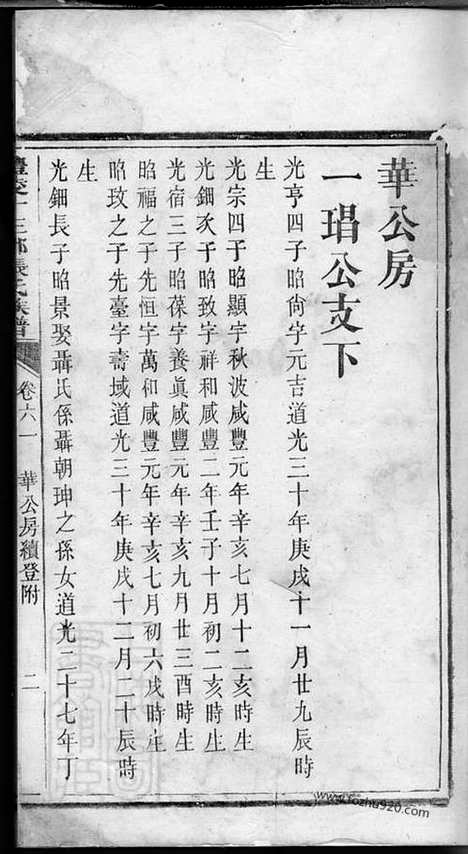 華公房
一瑁公支下
光亨四子昭尙字元吉道光三十年庚戌十一月廿九辰時
生
光宗四子昭顯字秋波咸豐元年辛亥七月十二亥時生
光鈿次子昭致字祥和咸豐二年壬子十月初二亥時生
光宿三子昭葆字養眞咸豐元年辛亥九月廿三酉時生
昭福之子先恒字萬和咸豐元年辛亥七月初六戌時生
昭玫之子先臺字壽域道光三十年庚戌十二月二十辰時
生
光鈿長子昭景娶聶氏係聶朝珅之孫女道光二十七年丁
十三都張氏族譜
卷六一
華公房續登附
二
www.fozhu920.com